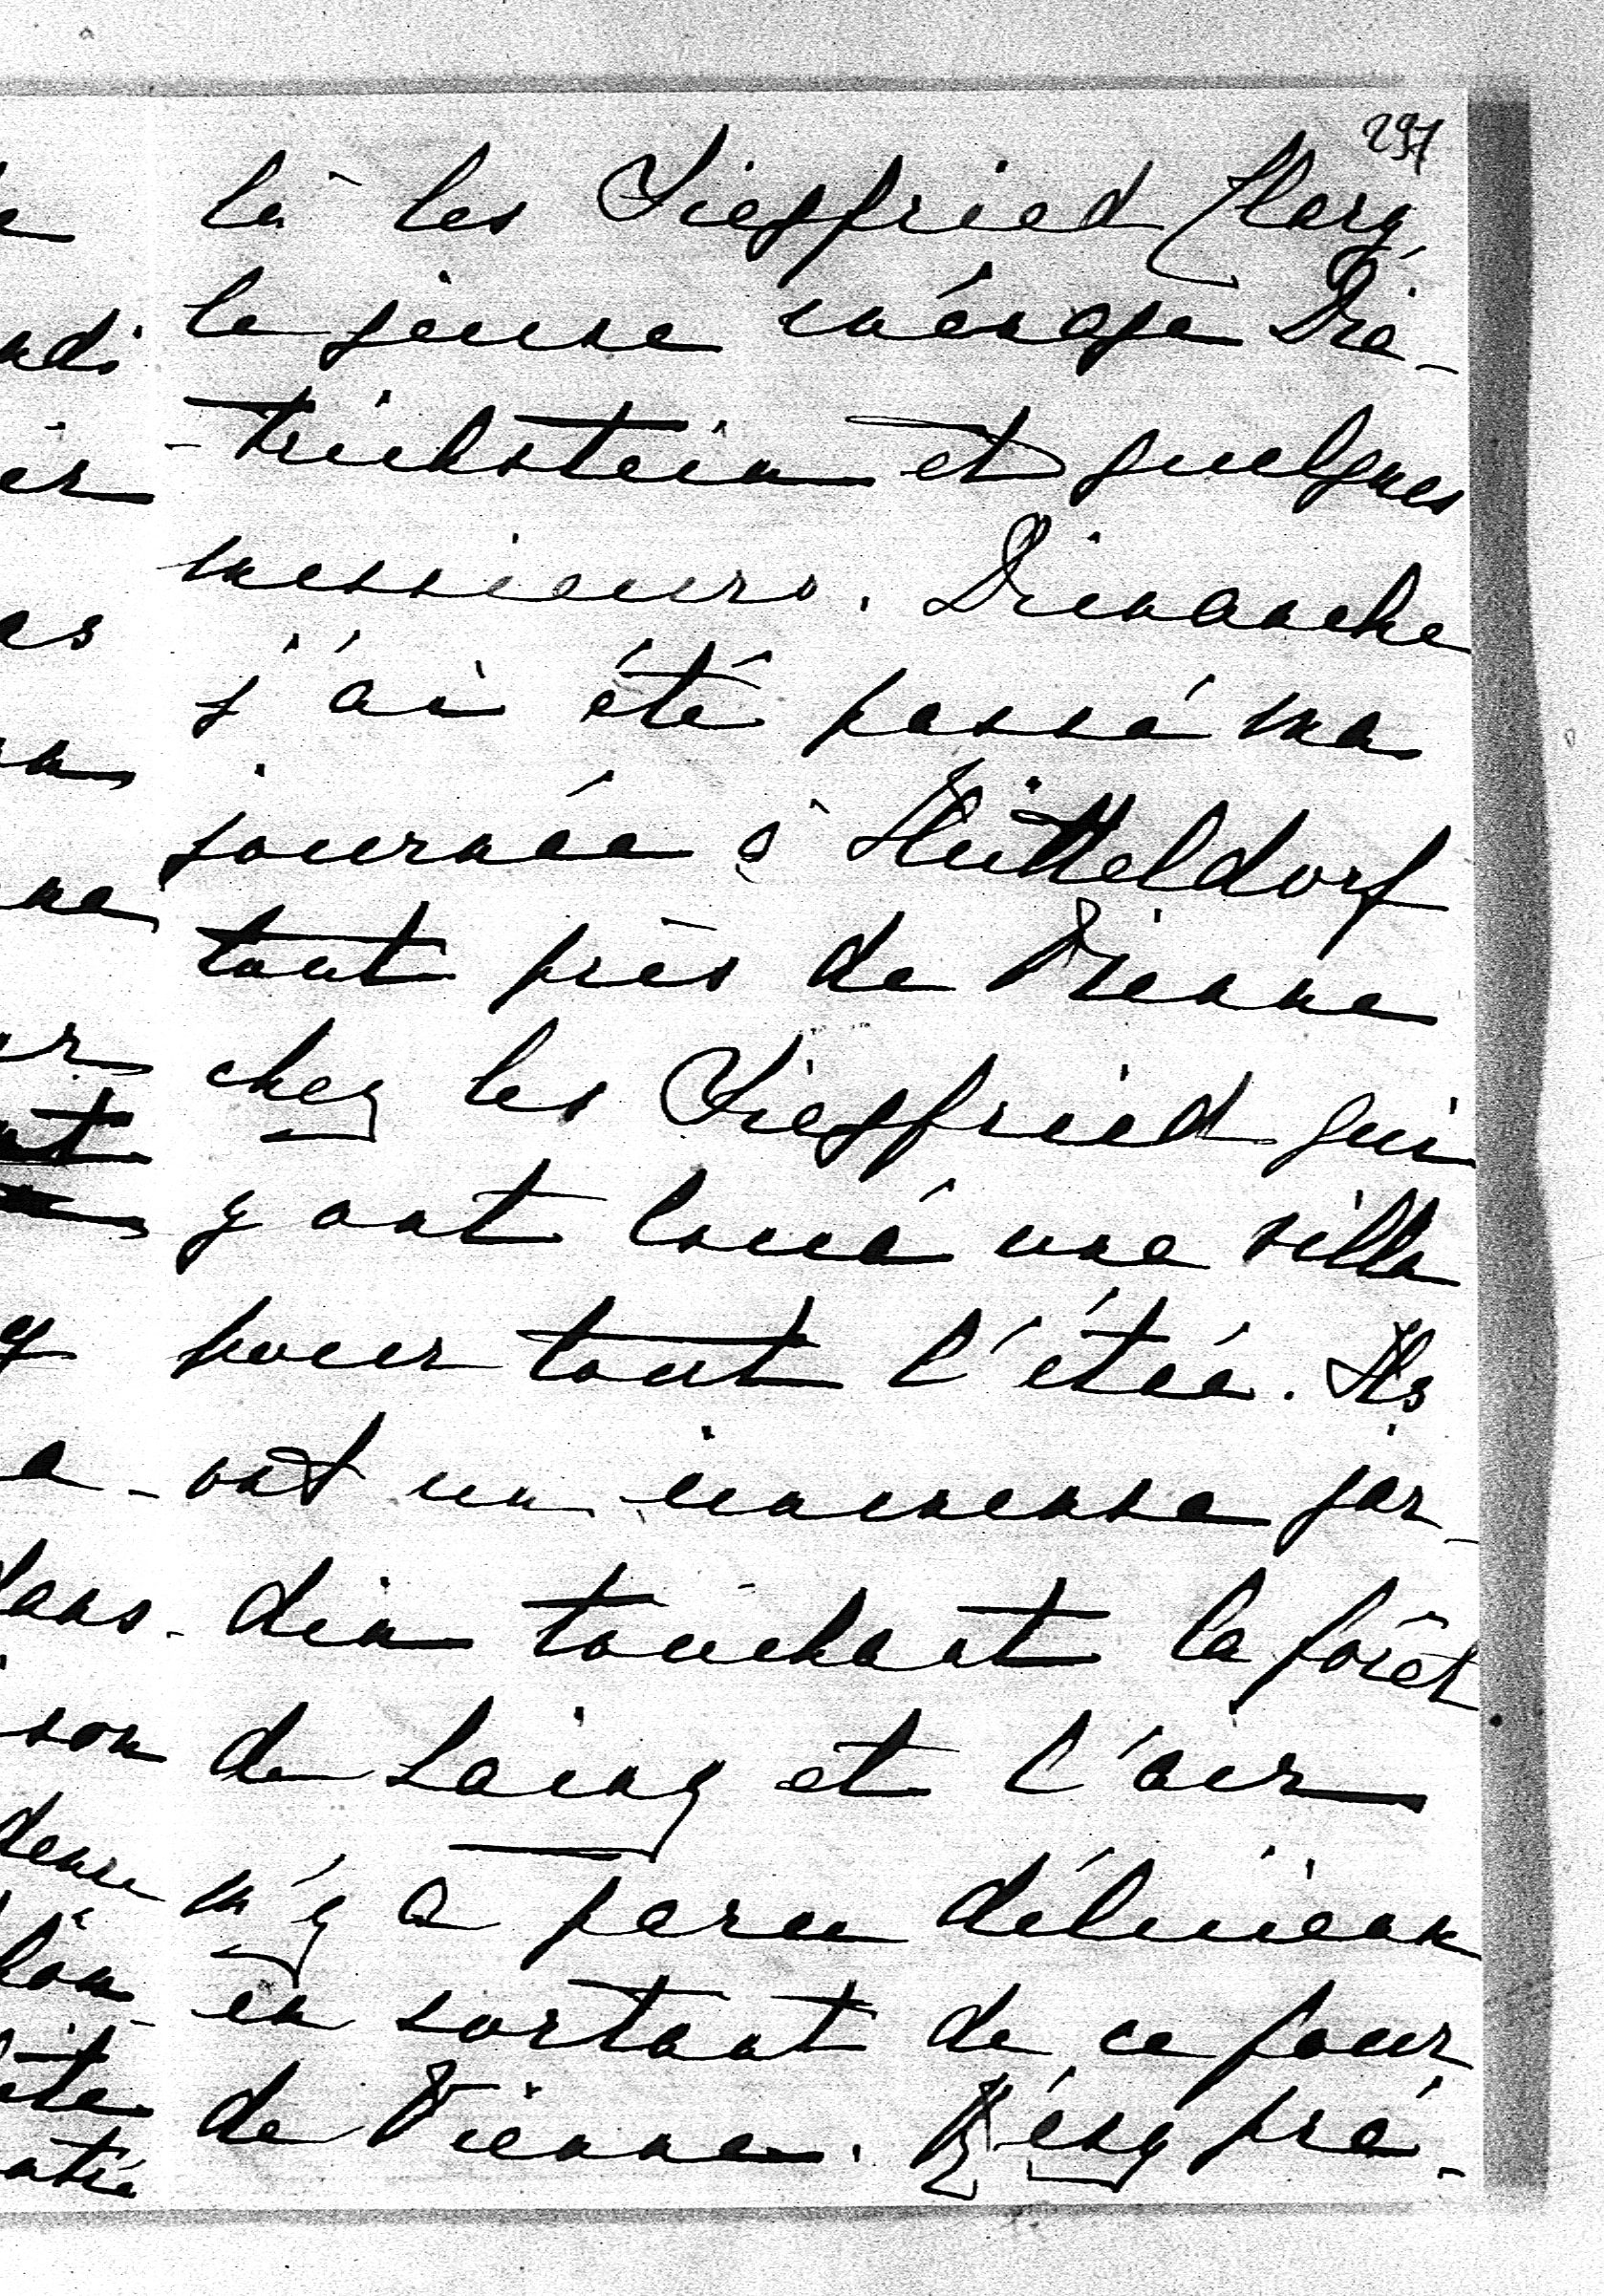 297
là les Siegfried Clary,
le jeune ménage Die-
-trichstein et quelques
messieurs. Dimanche
j'ai été passé ma
journée à Hütteldorf
tout près de Vienne
chez les Siegfried qui
y ont loué une villa
pour tout l'été. Ils
ont un immense jar-
din touchant la forêt
de Lainz et l'air
m'y a paru délicieux
en sortant de ce four
de Vienne. Résy pré-